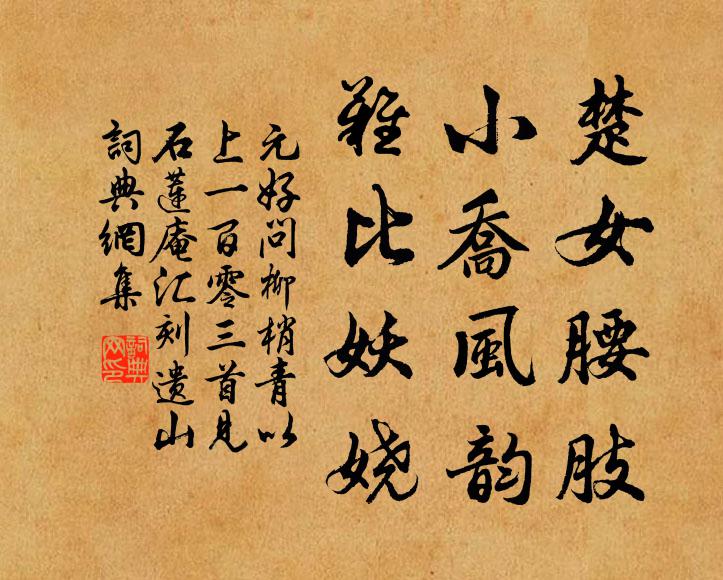 楚女腰肢
小喬風韵
難比妖娆
元好问柳梢青以
上一百零三首见
石蓮庵汇刻遗山
詞典網集
詞典
网印